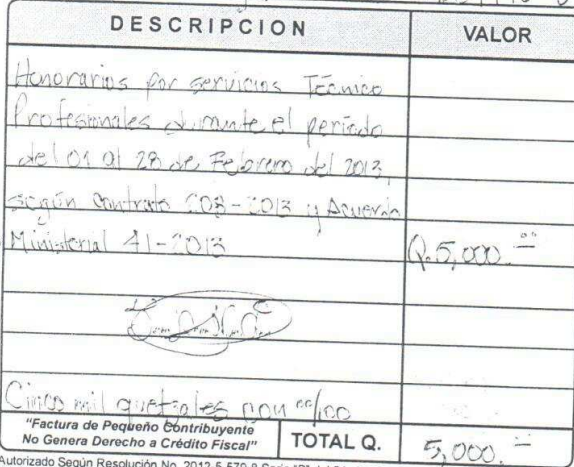 DESCRIPCION VALOR
Honorarios por servicios Técnico
Profesionales durante el período
del 01 al 28 de Febrero del 2013,
según Contrato 208-2013 y Acuerdo
Ministerial 41-2013 Q.5,000.00
Cinco mil quetzales con 00/100
"Factura de Pequeño Contribuyente
No Genera Derecho a Crédito Fiscal" TOTAL Q. 5,000.
Autorizado Según Resolución No.